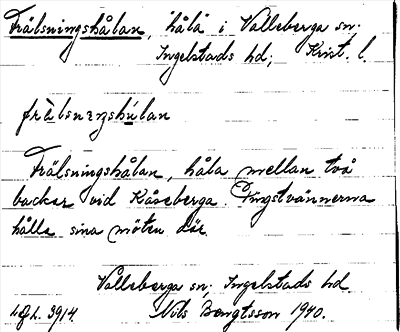 Frälsningshålan, håla i Valleberga sn;
Ingelstads hd; Krist. l.
frä̀lsnɩŋshúlan
Frälsningshålan, håla mellan två
backar vid Kåseberga. Pingstvännerna
hålla sina möten där.
Valleberga sn; Ingelstads hd
Nils Bengtsson 1940.
3914.